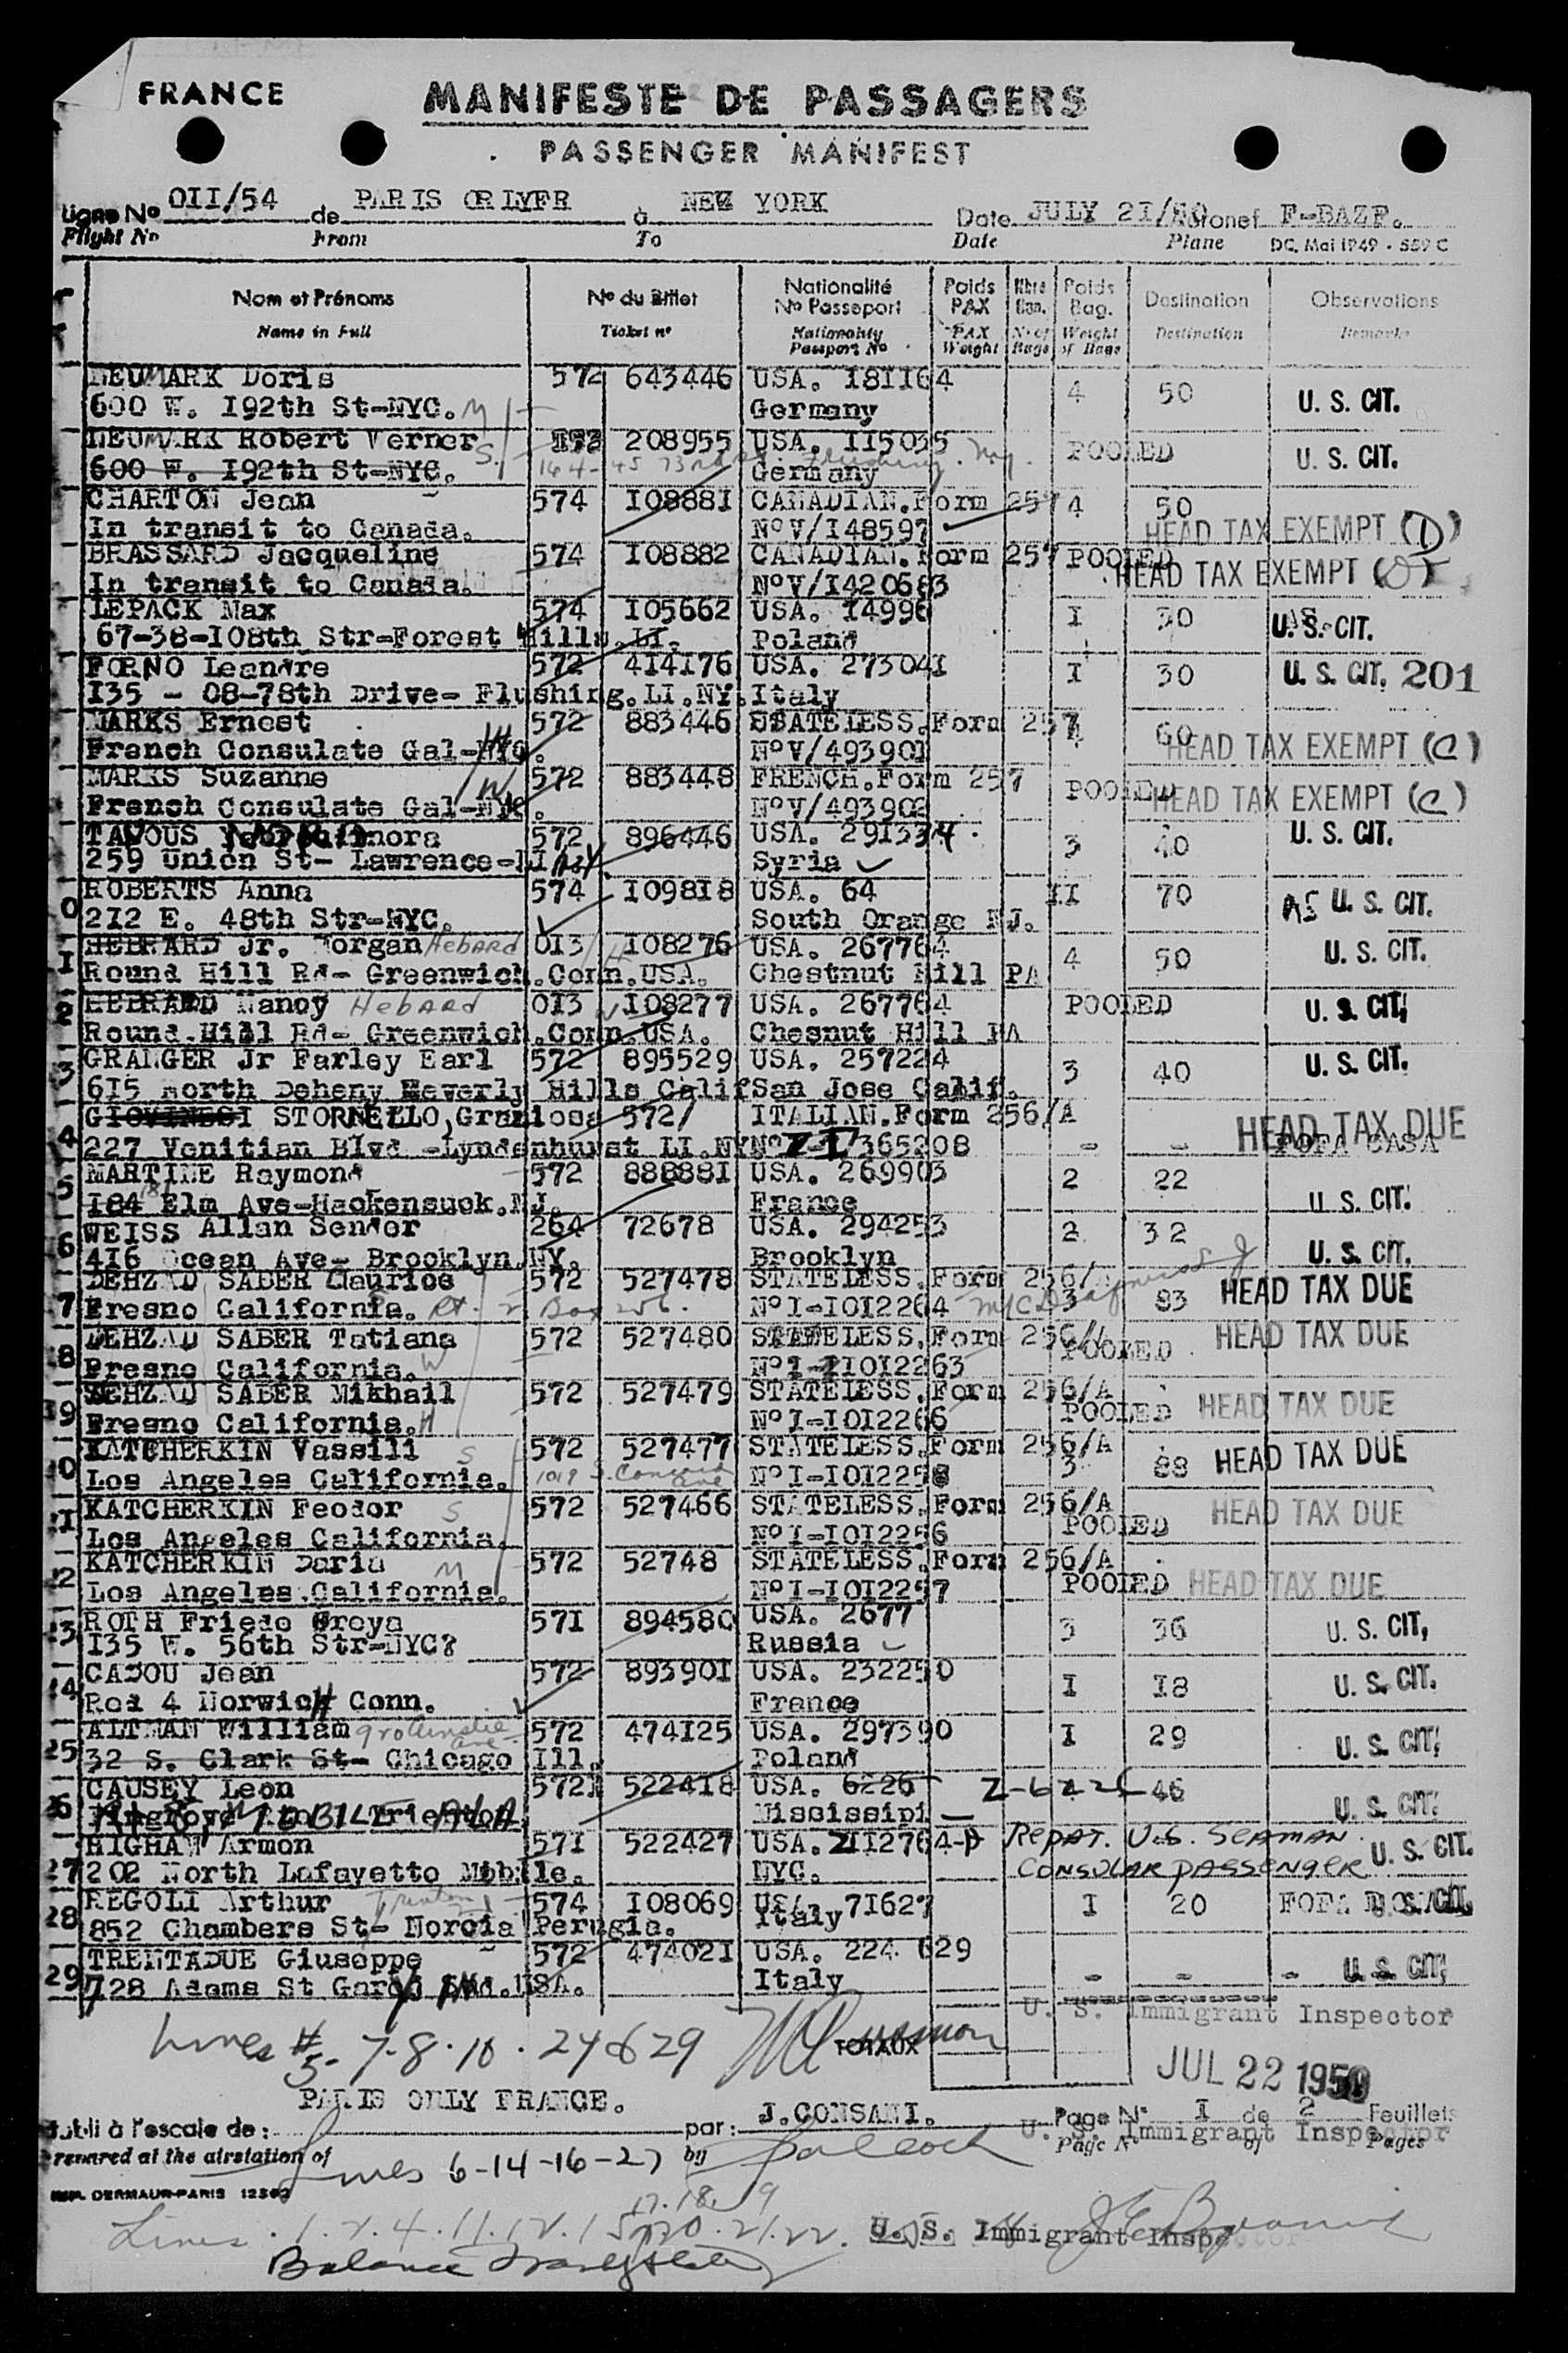 FRANCE
MANIFESTE DE PASSAGERS
PASSENGER MANIFEST
Ligne No OII/54 de PARIS ORLYFR à NEW YORK Date JULY 2I/50 Aéronef F-BAZF.
Flight No From To Date Plane DC. Mai 1949 - 559 C
Nom et Prénoms No du Billet Nationalité Poids Nbre Poids Destination Observations
No Passeport PAX Bag. Bag.
Name in Full Ticket no Nationality PAX No of Weight Destination Remarks
Passport No Weight Bags of Bags
NEUMARK Doris 572 643446 USA. I8II64 4 50 U. S. CIT.
600 W. I92th St-NYC. M Germany
NEUMARK Robert Verner 208955 USA. II5035 POOLED U. S. CIT.
600 W. I92th St-NYC. S. 164-45 73rd Flushing. NY. Germany
CHARTON Jean 574 I0888I CANADIAN.Form 257 4 50
In transit to Canada. No V/I48597 HEAD TAX EXEMPT (D)
BRASSARD Jacqueline 574 I08882 CANADIAN.Form 257 POOLED
In transit to Canada. No V/I420683 HEAD TAX EXEMPT (D)
LEPACK Max 574 I05662 USA. I4996 I 30 U. S. CIT.
67-38-I08th Str-Forest Hills.LI. Poland
FORNO Leandre 572 4I4I76 USA. 27304I I 30 U. S. CIT. 201
I35 - 08-78th Drive- Flushing.LI.NY.Italy
MARKS Ernest 572 883446 STATELESS.Form 257 60
French Consulate Gal-NYC. H No V/49390I HEAD TAX EXEMPT (C)
MARKS Suzanne 572 883448 FRENCH.Form 257 POOLED
French Consulate Gal-NYC. W No V/493902 HEAD TAX EXEMPT (C)
TAVOUS NORA 572 896446 USA. 291334. 3 40 U. S. CIT.
259 Union St- Lawrence- Syria
0 ROBERTS Anna 574 I098I8 USA. 64 II 70 U. S. CIT.
2I2 E. 48th Str-NYC. South Orange NJ.
I HEBRARD Jr. Morgan Hebard 0I3 I08276 USA. 267764 4 50 U. S. CIT.
Round Hill Rd- Greenwich.Conn.USA. H Chestnut Hill PA
2 HEBRARD Nancy Hebard 0I3 I08277 USA. 267764 POOLED U. S. CIT.
Round.Hill Rd- Greenwich.Conn.USA. W Chesnut Hill PA
3 GRANGER Jr Farley Earl 572 895529 USA. 257224 3 40 U. S. CIT.
6I5 North Deheny Beverly Hills Calif San Jose Calif.
GIOVINESI STORNELLO, Graziosa 572/ ITALIAN.Form 256/A HEAD TAX DUE
4 227 Venitian Blvd -Lyndenhurst LI.NY No I 365208 - - POFA CASA
5 MARTINE Raymond 572 88888I USA. 269903 2 22 U. S. CIT.
I84 Elm Ave-Hackensuck.NJ. France
6 WEISS Allan Sender 264 72678 USA. 294253 2 32
4I6 Ocean Ave- Brooklyn.NY. Brooklyn U. S. CIT.
DEHZAD SABER Maurice 572 527478 STATELESS.Form 256/
7 Fresno California. Rt. 2 Box 256. No I-I0I2264 3 83 HEAD TAX DUE
8 DEHZAD SABER Tatiana 572 527480 STATELESS.Form 256/A POOLED HEAD TAX DUE
Fresno California. W No I-I0I2263
DEHZAD SABER Mikhail 572 527479 STATELESS.Form 256/A
I9 Fresno California. H No I-I0I2266 POOLED HEAD TAX DUE
KATCHERKIN Vassili S 572 527477 STATELESS.Form 256/A
20 Los Angeles California. 1019 S. Concord Ave No I-I0I2258 3 88 HEAD TAX DUE
2I KATCHERKIN Feodor S 572 527466 STATELESS.Form 256/A HEAD TAX DUE
Los Angeles California. No I-I0I2256 POOLED
22 KATCHERKIN Daria M 572 52748 STATELESS.Form 256/A
Los Angeles.California. No I-I0I2257 POOLED HEAD TAX DUE
23 ROTH Frieda Freya 57I 894580 USA. 2677 3 36 U. S. CIT.
I35 W. 56th Str-NYC? Russia
24 CADOU Jean 572 89390I USA. 232250 I I8 U. S. CIT.
Rod 4 Norwich Conn. France
25 ALTMAN William 572 474I25 USA. 297390 I 29 U. S. CIT.
32 S. Clark St- Chicago Ill. Poland
26 CAUSEY Leon 572 5224I8 USA. 6226 Z-6226 46 U. S. CIT.
MOBILE ALA Mississipi
HIGHAW Armon 57I 522427 USA. ZII2764-D REPAT. U.S. SEAMAN U. S. CIT.
27 202 North Lafayette Mobile. NYC. CONSULAR PASSENGER
28 REGOLI Arthur Trenton 574 I08069 USA. 7I627 I 20 U. S. CIT.
852 Chambers St- Norcia Perugia. Italy
TRENTADUE Giuseppe 572 47402I USA. 224 629
29 728 Adams St Gary Ind.USA. Italy - - - U. S. CIT.
U. S. Immigrant Inspector
Lines # 5-7-8-10-24&29 TOTAUX
JUL 22 1950
PARIS ORLY FRANCE. J.CONSANI.
Etabli à l'escale de: par: Page No I de 2 Feuillets
U. S. Immigrant Inspector
Prepared at the airstation of by Page No of Pages
Lines 6-14-16-27
IMP. DERMAUR-PARIS
17.18.19
Lines .1.2.4.11.12.15.20.21.22. U. S. Immigrant Inspector
Balance